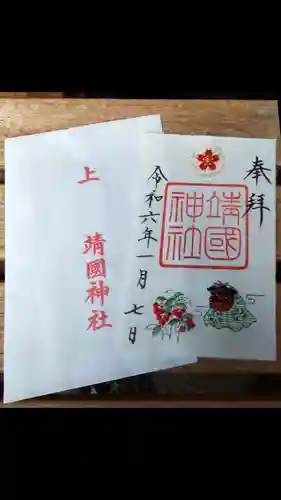 奉拝
靖國
神社
令和六年一月七日
上
靖國神社